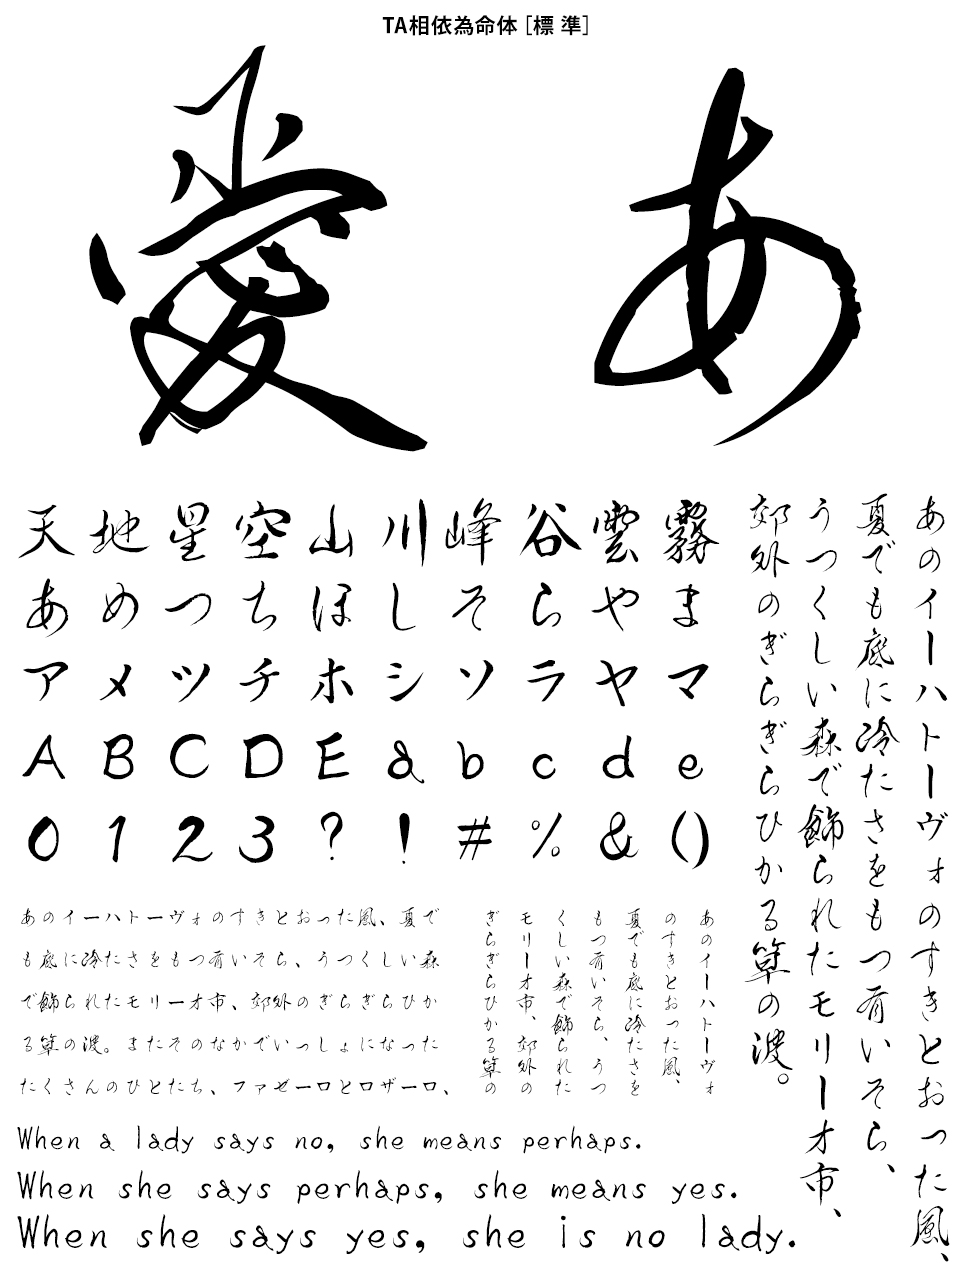 TA相依為命体［標 準］
愛 あ
天地星空山川峰谷雲霧
あめつちほしそらやま
アメツチホシソラヤマ
ABCDEabcde
0123?!#%&()
あのイーハトーヴォのすきとおった風、
夏でも底に冷たさをもつ青いそら、
うつくしい森で飾られたモリーオ市、
郊外のぎらぎらひかる草の波。
あのイーハトーヴォのすきとおった風、夏で
も底に冷たさをもつ青いそら、うつくしい森
で飾られたモリーオ市、郊外のぎらぎらひか
る草の波。またそのなかでいっしょになった
たくさんのひとたち、ファゼーロとロザーロ、
あのイーハトーヴォ
のすきとおった風、
夏でも底に冷たさを
もつ青いそら、うつ
くしい森で飾られた
モリーオ市、郊外の
ぎらぎらひかる草の
When a lady says no, she means perhaps.
When she says perhaps, she means yes.
When she says yes, she is no lady.